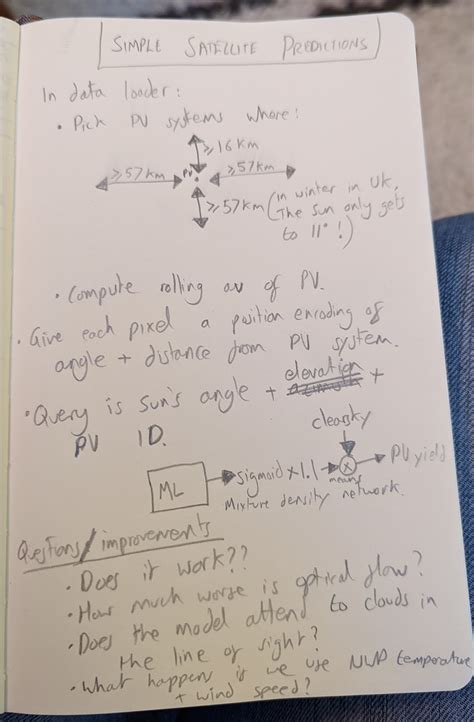 SIMPLE SATELLITE PREDICTIONS
In data loader:
• Pick PV systems where:
≥16km
≥57km PV ≥57km
≥57km (in winter in UK,
The sun only gets
to 11°!)
• Compute rolling av of PV.
• Give each pixel a position encoding of
angle + distance from PV system.
elevation
• Query is sun's angle + azimuth +
PV ID.
clearsky
ML → sigmoid x1.1 → ⊗ → PV yield
means
Mixture density network.
Questions/improvements
• Does it work??
• How much worse is optical flow?
• Does the model attend to clouds in
the line of sight?
• What happen if we use NWP temperature
+ wind speed?